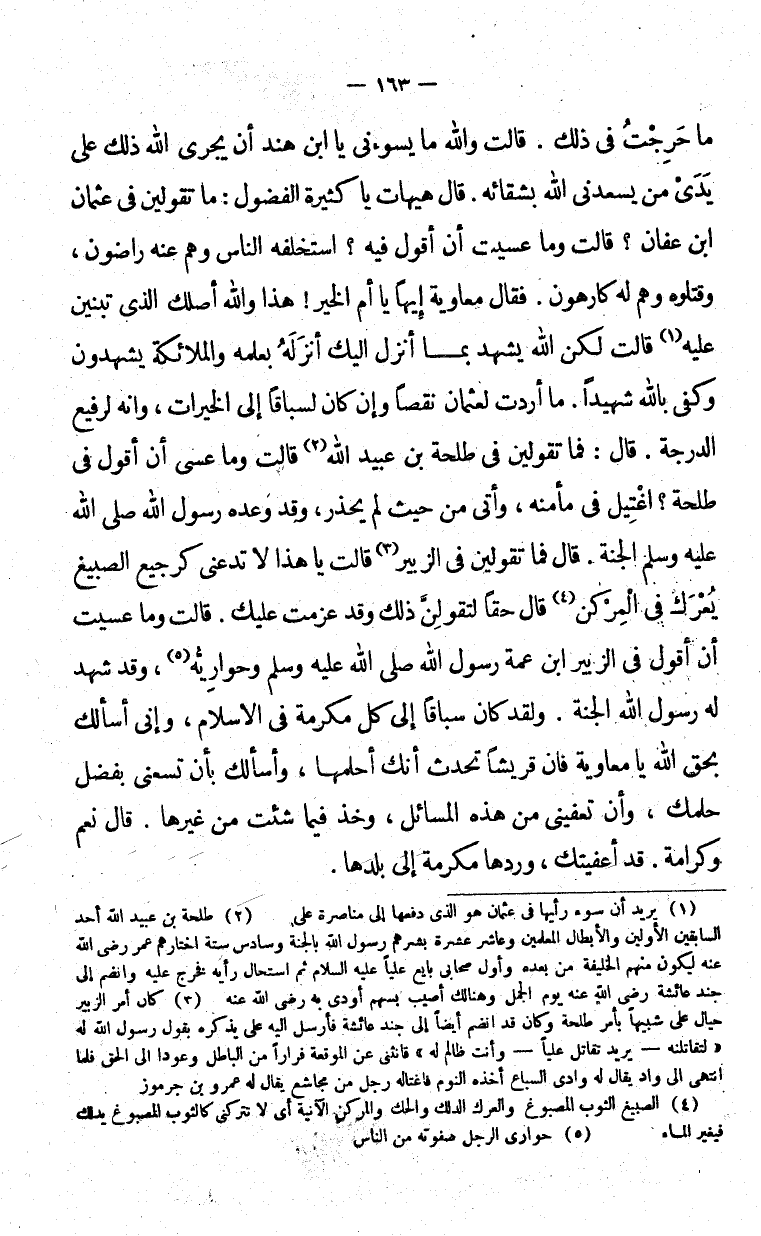 — ١٦٣ —
ما حَرِجْتُ فى ذلك . قالت والله ما يسوءنى يا ابن هند أن يجرى الله ذلك على
يَدَىْ من يسعدنى الله بشقائه . قال هيهات يا كثيرة الفضول : ما تقولين فى عثمان
ابن عفان ؟ قالت وما عسيت أن أقول فيه ؟ استخلفه الناس وهم عنه راضون ،
وقتلوه وهم له كارهون . فقال معاوية إيهاً يا أم الخير ! هذا والله أصلك الذى تبنين
عليه(١) قالت لكن الله يشهد بمـا أنزل اليك أنزَلَهُ بعلمه والملائكة يشهدون
وكفى بالله شهيداً . ما أردت لعثمان نقصاً وإن كان لسباقاً إلى الخيرات ، وانه لرفيع
الدرجة . قال : فما تقولين فى طلحة بن عبيد الله(٢) قالت وما عسى أن أقول فى
طلحة ؟ اغْتِيل فى مأمنه ، وأتى من حيث لم يحذر ، وقد وَعده رسول الله صلى الله
عليه وسلم الجنة . قال فما تقولين فى الزبير(٣) قالت يا هذا لا تدعنى كرجيع الصبيغ
يُعْرَك فى الْمِرْكَن(٤) قال حقاً لتقولِنَّ ذلك وقد عزمت عليك . قالت وما عسيت
أن أقول فى الزبير ابن عمة رسول الله صلى الله عليه وسلم وحواريِّه(٥) ، وقد شهد
له رسول الله الجنة . ولقد كان سباقاً إلى كل مكرمة فى الاسلام ، وإنى أسألك
بحق الله يا معاوية فان قريشاً تحدث أنك أحلمها ، وأسألك بأن تسعنى بفضل
حلمك ، وأن تعفينى من هذه المسائل ، وخذ فيما شئت من غيرها . قال نعم
وكرامة . قد أعفيتك ، وردها مكرمة إلى بلدها .
(١) يريد أن سوء رأيها فى عثمان هو الذى دفعها إلى مناصرة على (٢) طلحة بن عبيد الله أحد
السابقين الأولين والأبطال المعلمين وعاشر عشرة بشرهم رسول الله بالجنة وسادس ستة اختارهم عمر رضى الله
عنه ليكون منهم الخليفة من بعده وأول صحابى بايع علياً عليه السلام ثم استحال رأيه فخرج عليه وانضم إلى
جند عائشة رضى الله عنه يوم الجمل وهنالك أصيب بسهم أودى به رضى الله عنه (٣) كان أمر الزبير
حيال على شبيهاً بأمر طلحة وكان قد انضم أيضاً إلى جند عائشة فأرسل اليه على يذكره بقول رسول الله له
« لتقاتلنه — يريد تقاتل علياً — وأنت ظالم له » فانثنى عن الموقعة فراراً من الباطل وعودا الى الحق فلما
انتهى الى واد يقال له وادى السباع أخذه النوم فاغتاله رجل من مجاشع يقال له عمرو بن جرموز
(٤) الصبيغ الثوب المصبوغ والعرك الدلك والحك والمركن الآنية أى لا تتركنى كالثوب المصبوغ يدلك
فيغير المـاء (٥) حوارى الرجل صفوته من الناس